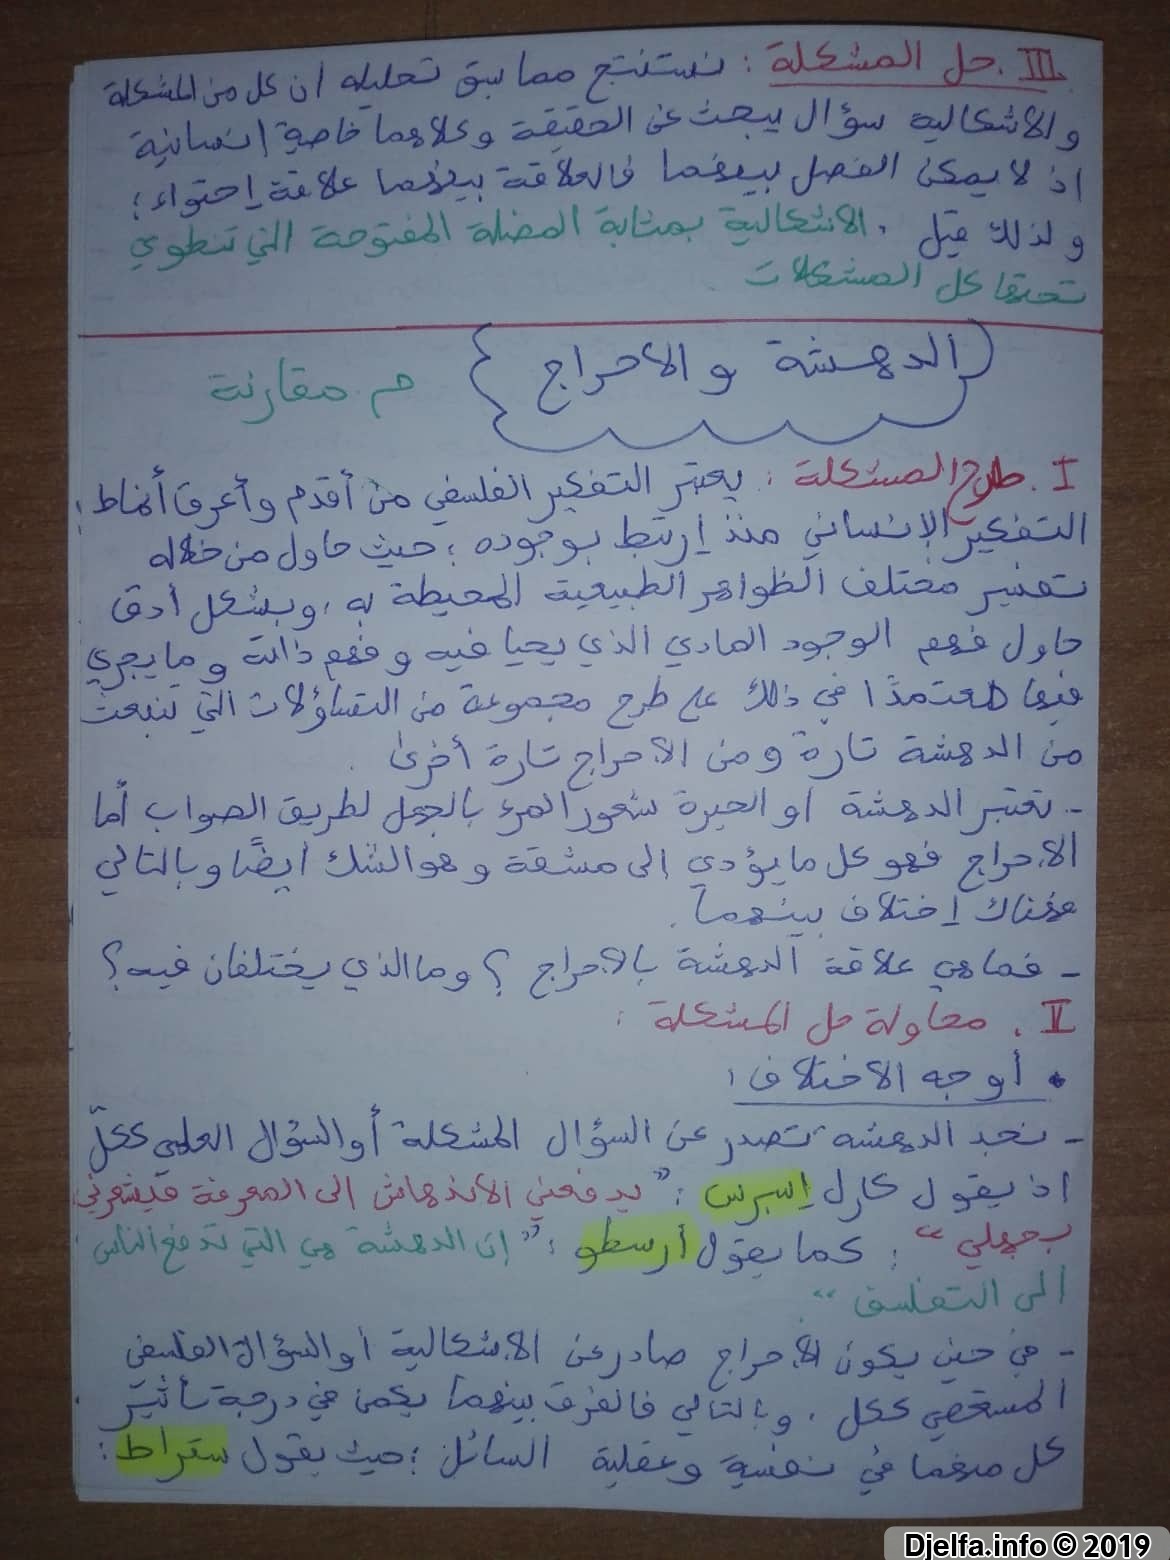 III. حل المشكلة : نستنتج مما سبق تحليله ان كل من المشكلة
و الاشكالية سؤال يبحث عن الحقيقة و كلاهما خاصية انسانية
اذ لا يمكن الفصل بينهما فالعلاقة بينهما علاقة إحتواء ؛
و لذلك قيل . الاشكالية بمثابة المضلة المفتوحة التي تنطوي
تحتها كل المشكلات
الدهشة و الاحراج
م. مقارنة
I. طرح المشكلة : يعتبر التفكير الفلسفي من أقدم و أعرق أنماط
التفكير الإنساني منذ إرتبط بوجوده ؛ حيث حاول من خلاله
تفسير مختلف الظواهر الطبيعية المحيطة به ، و بشكل أدق
حاول فهم الوجود المادي الذي يحيا فيه و فهم ذاته و ما يجري
فيها معتمدًا في ذلك على طرح مجموعة من التساؤلات التي تنبعث
من الدهشة تارة و من الاحراج تارة أخرى .
- تعتبر الدهشة او الحيرة شعور المرء بالجهل لطريق الصواب أما
الاحراج فهو كل ما يؤدي إلى مشقة و هو الشك ايضًا و بالتالي
فهناك إختلاف بينهما .
- فما هي علاقة الدهشة بالاحراج ؟ و ما الذي يختلفان فيه ؟
II. محاولة حل المشكلة :
• أوجه الاختلاف :
- نجد الدهشة تصدر عن السؤال المشكلة أو السؤال العلمي ككلّ
اذ يقول كارل اسبرس : " يدفعني الاندهاش الى المعرفة فيشعرني
بجهلي " ؛ كما يقول أرسطو : " إن الدهشة هي التي تدفع الناس
الى التفلسف "
- في حين يكون الاحراج صادر عن الاشكالية او السؤال الفلسفي
المستعصي ككل . و بالتالي فالفرق بينهما يكمن في درجة تأثير
كل منهما في نفسية و عقلية السائل ؛ حيث يقول سقراط :
Djelfa.info © 2019